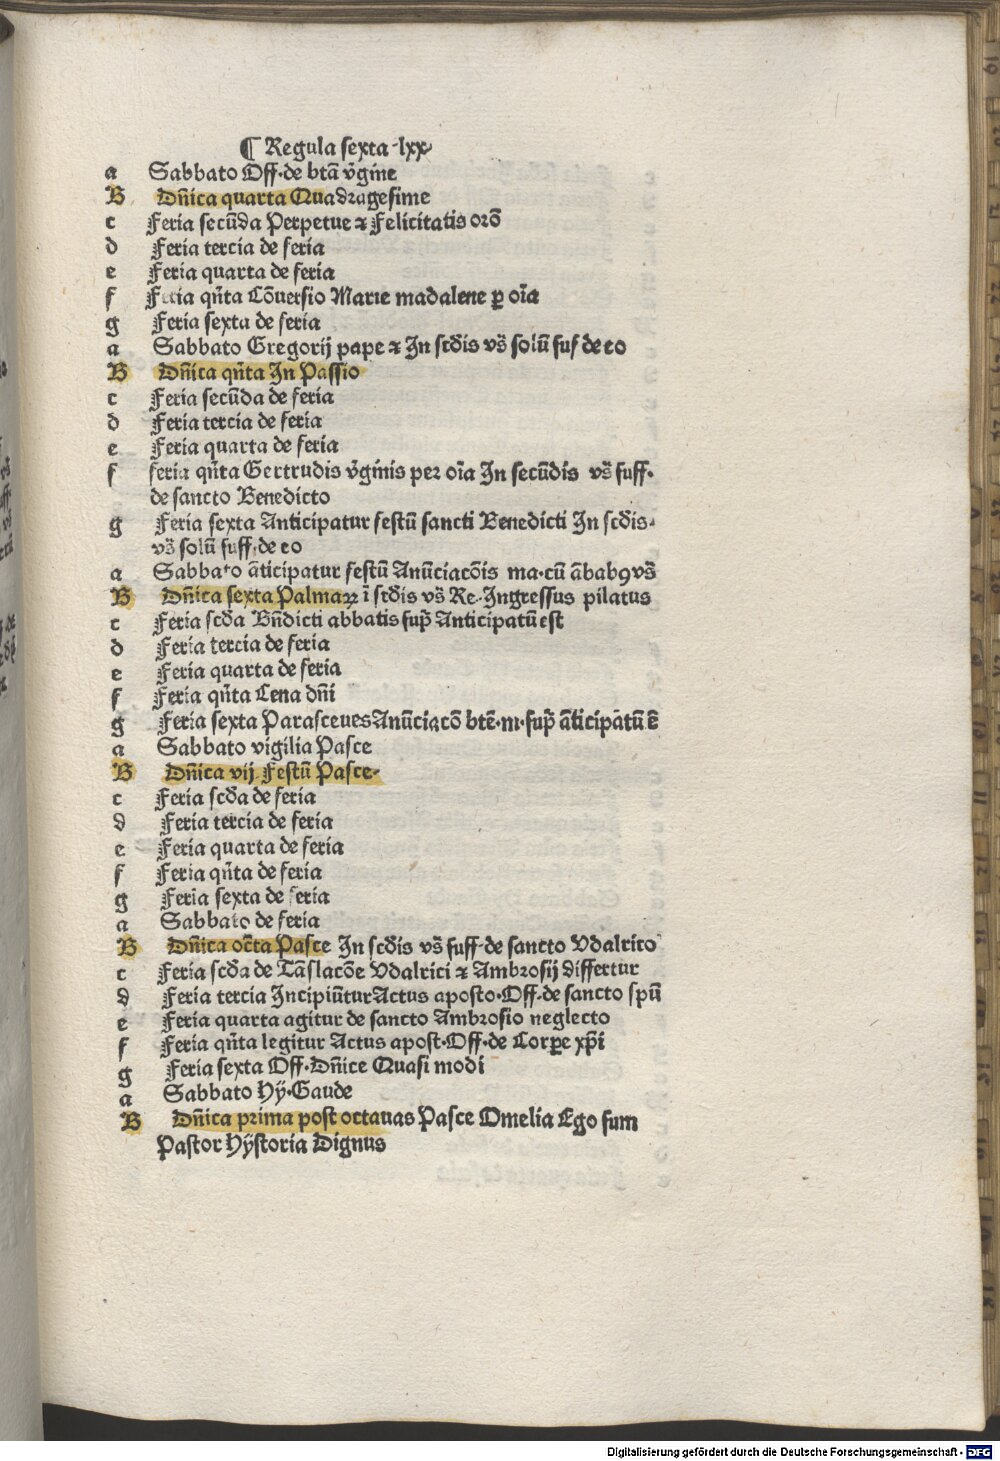 ¶ Regula sexta ·lxx·
a Sabbato Off·de btā v̄gīne
B Dn̄ica quarta Quadragesime
c Feria secūda Perpetue ⁊ Felicitatis orō
d Feria tercia de feria
e Feria quarta de feria
f Feria qn̄ta Cōuersio Marie madalene ꝑ oīa
g Feria sexta de feria
a Sabbato Gregorij pape ⁊ In scd̄is vs̄ solū suf de eo
B Dn̄ica qn̄ta In Passio
c Feria secūda de feria
d Feria tercia de feria
e Feria quarta de feria
f feria qn̄ta Gertrudis v̄gīnis per oīa In secūdis vs̄ suff·
de sancto Benedicto
g Feria sexta Anticipatur festū sancti Benedicti In scd̄is·
vs̄ solū suff·de eo
a Sabbato āticipatur festū Anūciacōis ma·cū ābabꝰ vs̄
B Dn̄ica sexta Palmaꝝ ī scd̄is vs̄ Re·Ingressus pilatus
c Feria scd̄a Bn̄dicti abbatis sup̄ Anticipatū est
d Feria tercia de feria
e Feria quarta de feria
f Feria qn̄ta Cena dn̄i
g Feria sexta Parasceues Anūciacō btē·m·sup̄ āticipatū ē
a Sabbato vigilia Pasce
B Dn̄ica vij Festū Pasce·
c Feria scd̄a de feria
d Feria tercia de feria
e Feria quarta de feria
f Feria qn̄ta de feria
g Feria sexta de feria
a Sabbato de feria
B Dn̄ica oct̄a Pasce In scd̄is vs̄ suff·de sancto Vdalrico
c Feria scd̄a de Tāslacōe Vdalrici ⁊ Ambrosij differtur
d Feria tercia Incipiūtur Actus aposto·Off·de sancto spū
e Feria quarta agitur de sancto Ambrosio neglecto
f Feria qn̄ta legitur Actus apost·Off·de Corꝑe xp̄i
g Feria sexta Off·Dn̄ice Quasi modi
a Sabbato Hȳ·Gaude
B Dn̄ica prima post octauas Pasce Omelia Ego sum
Pastor Hÿstoria Dignus
Digitalisierung gefördert durch die Deutsche Forschungsgemeinschaft - DFG